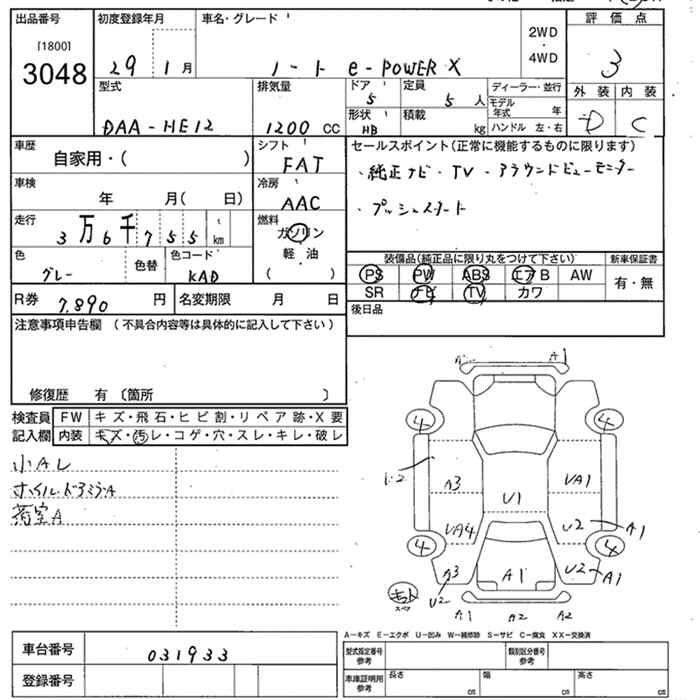 出品番号 初度登録年月 車名・グレード 評価点
［1800］
3048
29 1月
ノート e-POWER X
2WD
・
4WD
3
型式 排気量 ドア 5 定員 5人 ディーラー・並行
モデル年式 年
外装 内装
DAA-HE12 1200 CC 形状 HB 積載 kg ハンドル 左・右 D C
車歴 シフト セールスポイント(正常に機能するものに限ります)
自家用・( ) FAT
・純正ナビ・TV・アラウンドビューモニター
車検 冷房
年 月( 日) AAC
・プッシュスタート
走行 燃料
3万6千755 km ガソリン
軽・油
( )
色 色替 色コード 装備品(純正品に限り丸をつけて下さい) 新車保証書
グレー KAD PS PW ABS エアB AW 有・無
R券 7,890 円 名変期限 月 日 SR ナビ TV カワ
後日品
注意事項申告欄 (不具合内容等は具体的に記入して下さい)
修復歴 有 〔箇所 〕
検査員 FW キズ・飛石・ヒビ割・リペア跡・X要
記入欄 内装 キズ・汚レ・コゲ・穴・スレ・キレ・破レ
小AL
荷室A
A1
4 4
A3 VA1
U1
VA4 U2 A1
4 4
A3 A1 U2 A1
U2
スペア
A1 A2 A2
A－キズ E－エクボ U－凹み W－補修跡 S－サビ C－腐食 XX－交換済
車台番号 031933
型式指定番号 参考 類別区分番号 参考
登録番号
車庫証明用 参考 長さ cm 幅 cm 高さ cm